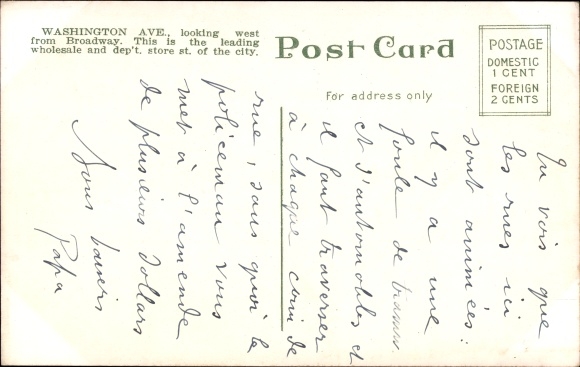 WASHINGTON AVE., looking west
from Broadway. This is the leading
wholesale and dep't. store st. of the city.
Post Card
For address only
POSTAGE
DOMESTIC
1 CENT
FOREIGN
2 CENTS
Tu vois que
les rues ici
sont animées:
il y a une
foule de tramw
et d'automobiles et
il faut traverser
à chaque coin de
rue, sans quoi le
policeman vous
met à l'amende
de plusieurs dollars
Bons baisers
Papa